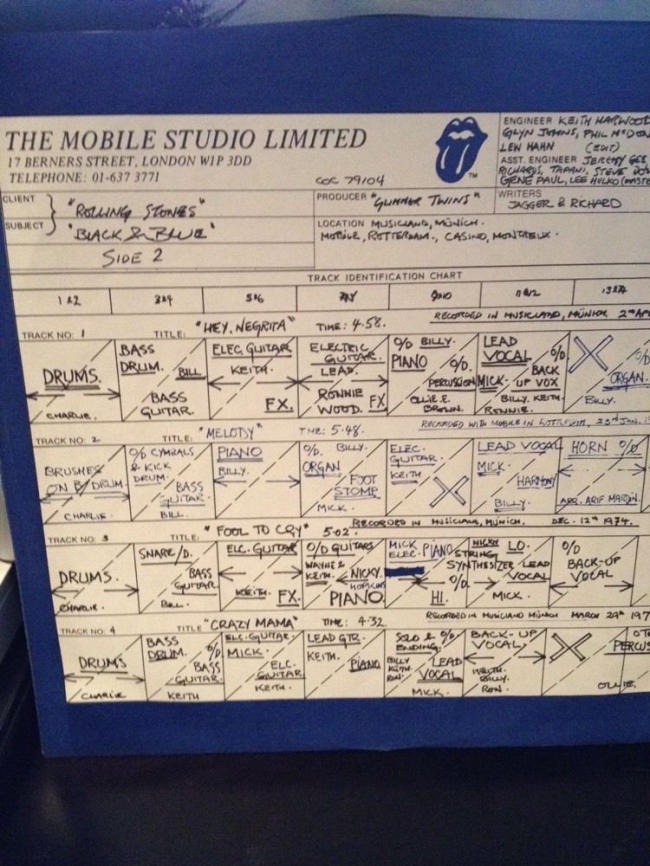 THE MOBILE STUDIO LIMITED
17 BERNERS STREET, LONDON W1P 3DD
TELEPHONE: 01-637 3771
COC 79104
TM
ENGINEER KEITH HARWOOD
GLYN JOHNS, PHIL McDON
LEW HAHN (EDIT)
ASST. ENGINEER JEREMY GEE
RICHARDS, TAPANI, STEVE DOW
GENE PAUL, LEE HULKO (MASTE
WRITERS
JAGGER & RICHARD
CLIENT "ROLLING STONES"
SUBJECT "BLACK & BLUE"
SIDE 2
PRODUCER "GLIMMER TWINS"
LOCATION MUSICLAND, MÜNICH.
MOBILE, ROTTERDAM., CASINO, MONTREUX.
TRACK IDENTIFICATION CHART
1&2 3&4 5&6 9&10 11&12
TRACK NO: 1 TITLE: "HEY, NEGRITA" TIME: 4.58. RECORDED IN MUSICLAND, MÜNICH 2nd APR
DRUMS. CHARLIE.
BASS DRUM. BILL BASS GUITAR.
ELEC. GUITAR KEITH. FX.
ELECTRIC GUITAR. LEAD. RONNIE WOOD. FX
O/D BILLY. PIANO O/D. PERCUSSION OLLIE E. BROWN.
LEAD VOCAL MICK. O/D BACK UP VOX BILLY. KEITH. RONNIE.
O/D ORGAN. BILLY.
TRACK NO: 2 TITLE: "MELODY" TIME: 5.48. RECORDED WITH MOBILE IN ROTTERDAM.
BRUSHES ON B/DRUM CHARLIE.
O/D CYMBALS & KICK DRUM. BASS GUITAR. BILL.
PIANO BILLY.
O/D. BILLY. ORGAN FOOT STOMP MICK.
ELEC. GUITAR. KEITH
LEAD VOCAL MICK. HARMONY BILLY.
HORN O/D ARR. ARIF MARDIN.
TRACK NO: 3 TITLE: "FOOL TO CRY" 5.02. RECORDED IN MUSICLAND, MÜNICH. DEC. 12th 1974.
DRUMS. CHARLIE.
SNARE/D. BASS GUITAR BILL.
ELC. GUITAR KEITH. FX.
O/D GUITARS WAYNE & KEITH. NICKY HOPKINS PIANO.
MICK ELEC. PIANO O/D. HI.
NICKY STRING SYNTHESIZER LO. LEAD VOCAL MICK.
O/D BACK-UP VOCAL
TRACK NO: 4 TITLE "CRAZY MAMA" TIME: 4.32 RECORDED IN MUSICLAND MÜNICH MARCH 29th 197
DRUMS CHARLIE
BASS DRUM. O/D BASS GUITAR. KEITH
ELC. GUITAR. MICK. ELC. GUITAR. KEITH.
LEAD GTR. KEITH. PIANO
SOLO & O/D ENDING. BILLY KEITH RON. LEAD VOCAL MICK.
BACK-UP VOCAL KEITH. BILLY. RON.
PERCUS OLLIE.